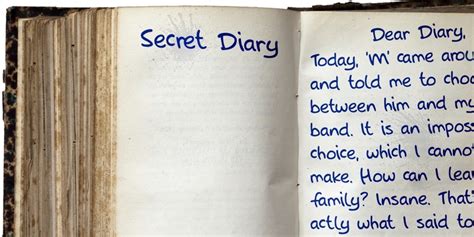 Secret Diary
Dear Diary,
Today, 'M' came arou
and told me to choo
between him and my
band. It is an imposs
choice, which I canno
make. How can I lea
family? Insane. That'
actly what I said to